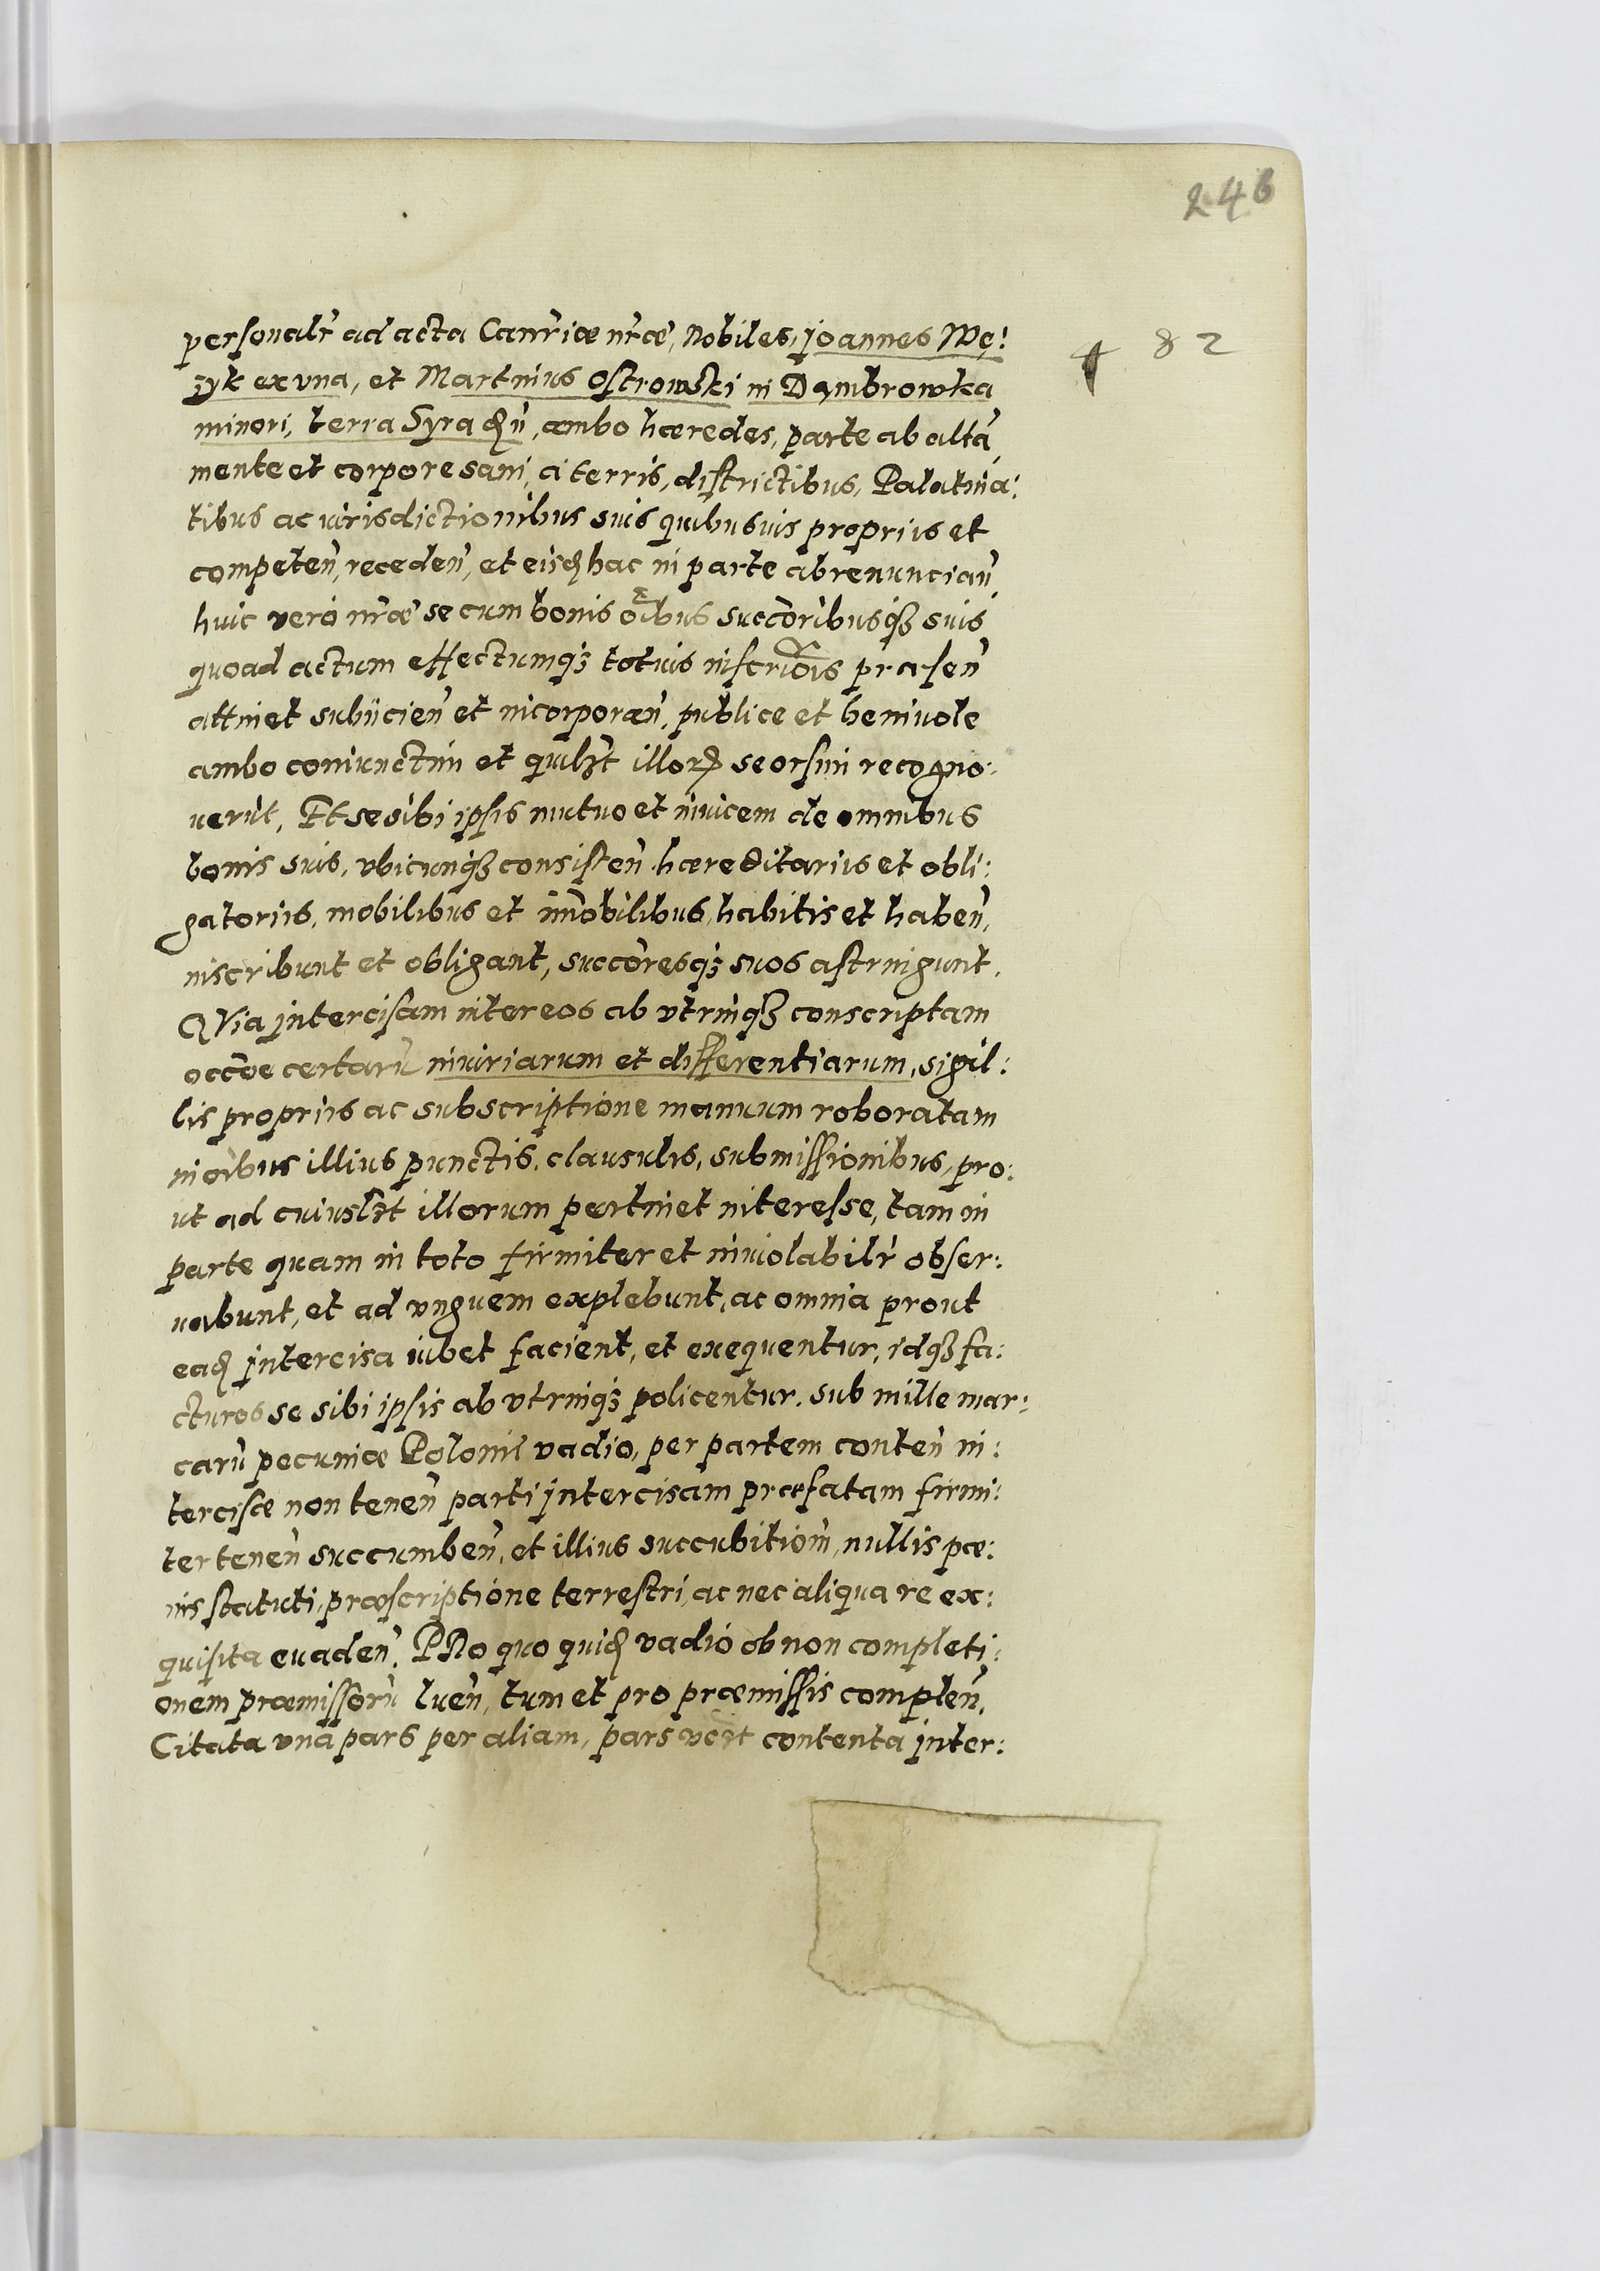 246
82
personalr̃ ad acta Canr̃iæ nr̃æ, Nobiles, Joannes Wę:
zyk ex vna, et Martinus Ostrowski in Dąmbrowka
minori, terra Syradien̄, ambo hæredes, parte ab altā,
mente et corpore sani, a terris, districtibus, Palatina:
tibus ac iurisdictionibus suis quibusuis proprijs et
competen̄, receden̄, et eisd hac in parte abrenuncian̄,
huic vero nr̃æ se cum bonis oībus succoribusq3 suis
quoad actum effectumq3 totius inscriōis præsen̄
attinet subijcien̄ et incorporan̄, publice et beniuole
ambo coniunctim et quilzt illorz seorsim recogno:
uerūt, Et se sibi ipsis mutuo et inuicem de omnibus
bonis suis, vbicunq3 consisten̄ hæreditarijs et obli:
gatorijs, mobilibus et im̄obilibus, habitis et haben̄,
inscribunt et obligant, succoresq3 suos astringunt.
QVia intercisam inter eos ab vtrinq3 conscriptam
occōe certarū iniuriarum et differentiarum, sigil:
lis proprijs ac subscriptione manuum roboratam
in oībus illius punctis, clausulis, submissionibus, pro:
ut ad cuiuslzt illorum pertinet interesse, tam in
parte quam in toto firmiter et inuiolabilr̃ obser:
uabunt, et ad vnguem explebunt, ac omnia prout
ead intercisa iubet facient, et exequentur, idq3 fa:
cturos se sibi ipsis ab vtrinq3 policentur. sub mille mar:
carū pecuniæ Polonil vadio, per partem conten̄ in:
tercisæ non tenen̄ parti intercisam præfatam firmi:
ter tenen̄ succumben̄, et illius succubitiom̄, nullis pæ:
nis statuti, præscriptione terrestri, ac nec aliqua re ex:
quisita euaden̄. PRo quo quid vadio ob non completi:
onem præmissorū luen̄, tum et pro præmissis complen̄,
Citata vna pars per aliam, pars contenta inter: